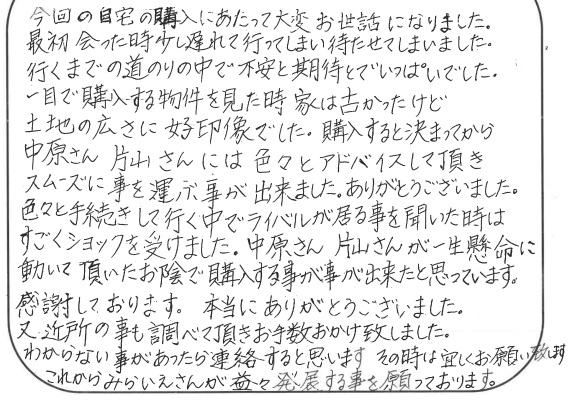 今回の自宅の購入にあたって大変お世話になりました。
最初会った時少し遅れて行ってしまい待たせてしまいました。
行くまでの道のりの中で不安と期待とでいっぱいでした。
一目で購入する物件を見た時家は古かったけど
土地の広さに好印象でした。購入すると決まってから
中原さん 片山さんには色々とアドバイスして頂き
スムーズに事を運ぶ事が出来ました。ありがとうございました。
色々と手続きして行く中でライバルが居る事を聞いた時は
すごくショックを受けました。中原さん 片山さんが一生懸命に
動いて頂いたお陰で購入する事が事が出来たと思っています。
感謝しております。本当にありがとうございました。
又近所の事も調べて頂きお手数おかけ致しました。
わからない事があったら連絡すると思います その時は宜しくお願い致します
これからみらいえさんが益々発展する事を願っております。